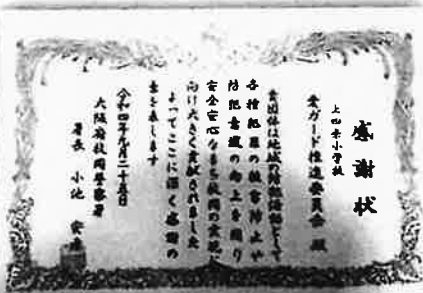 感謝状
上山手小学校
愛ガード推進委員会 殿
貴団体は地域の
各種犯罪の被害防止や
防犯意識の向上を図り
安全安心なまち枚岡の実現に
向け大きく貢献されました
よってここに深く感謝の
意を表します
令和四年九月二十五日
大阪府枚岡警察署
署長 小池 安